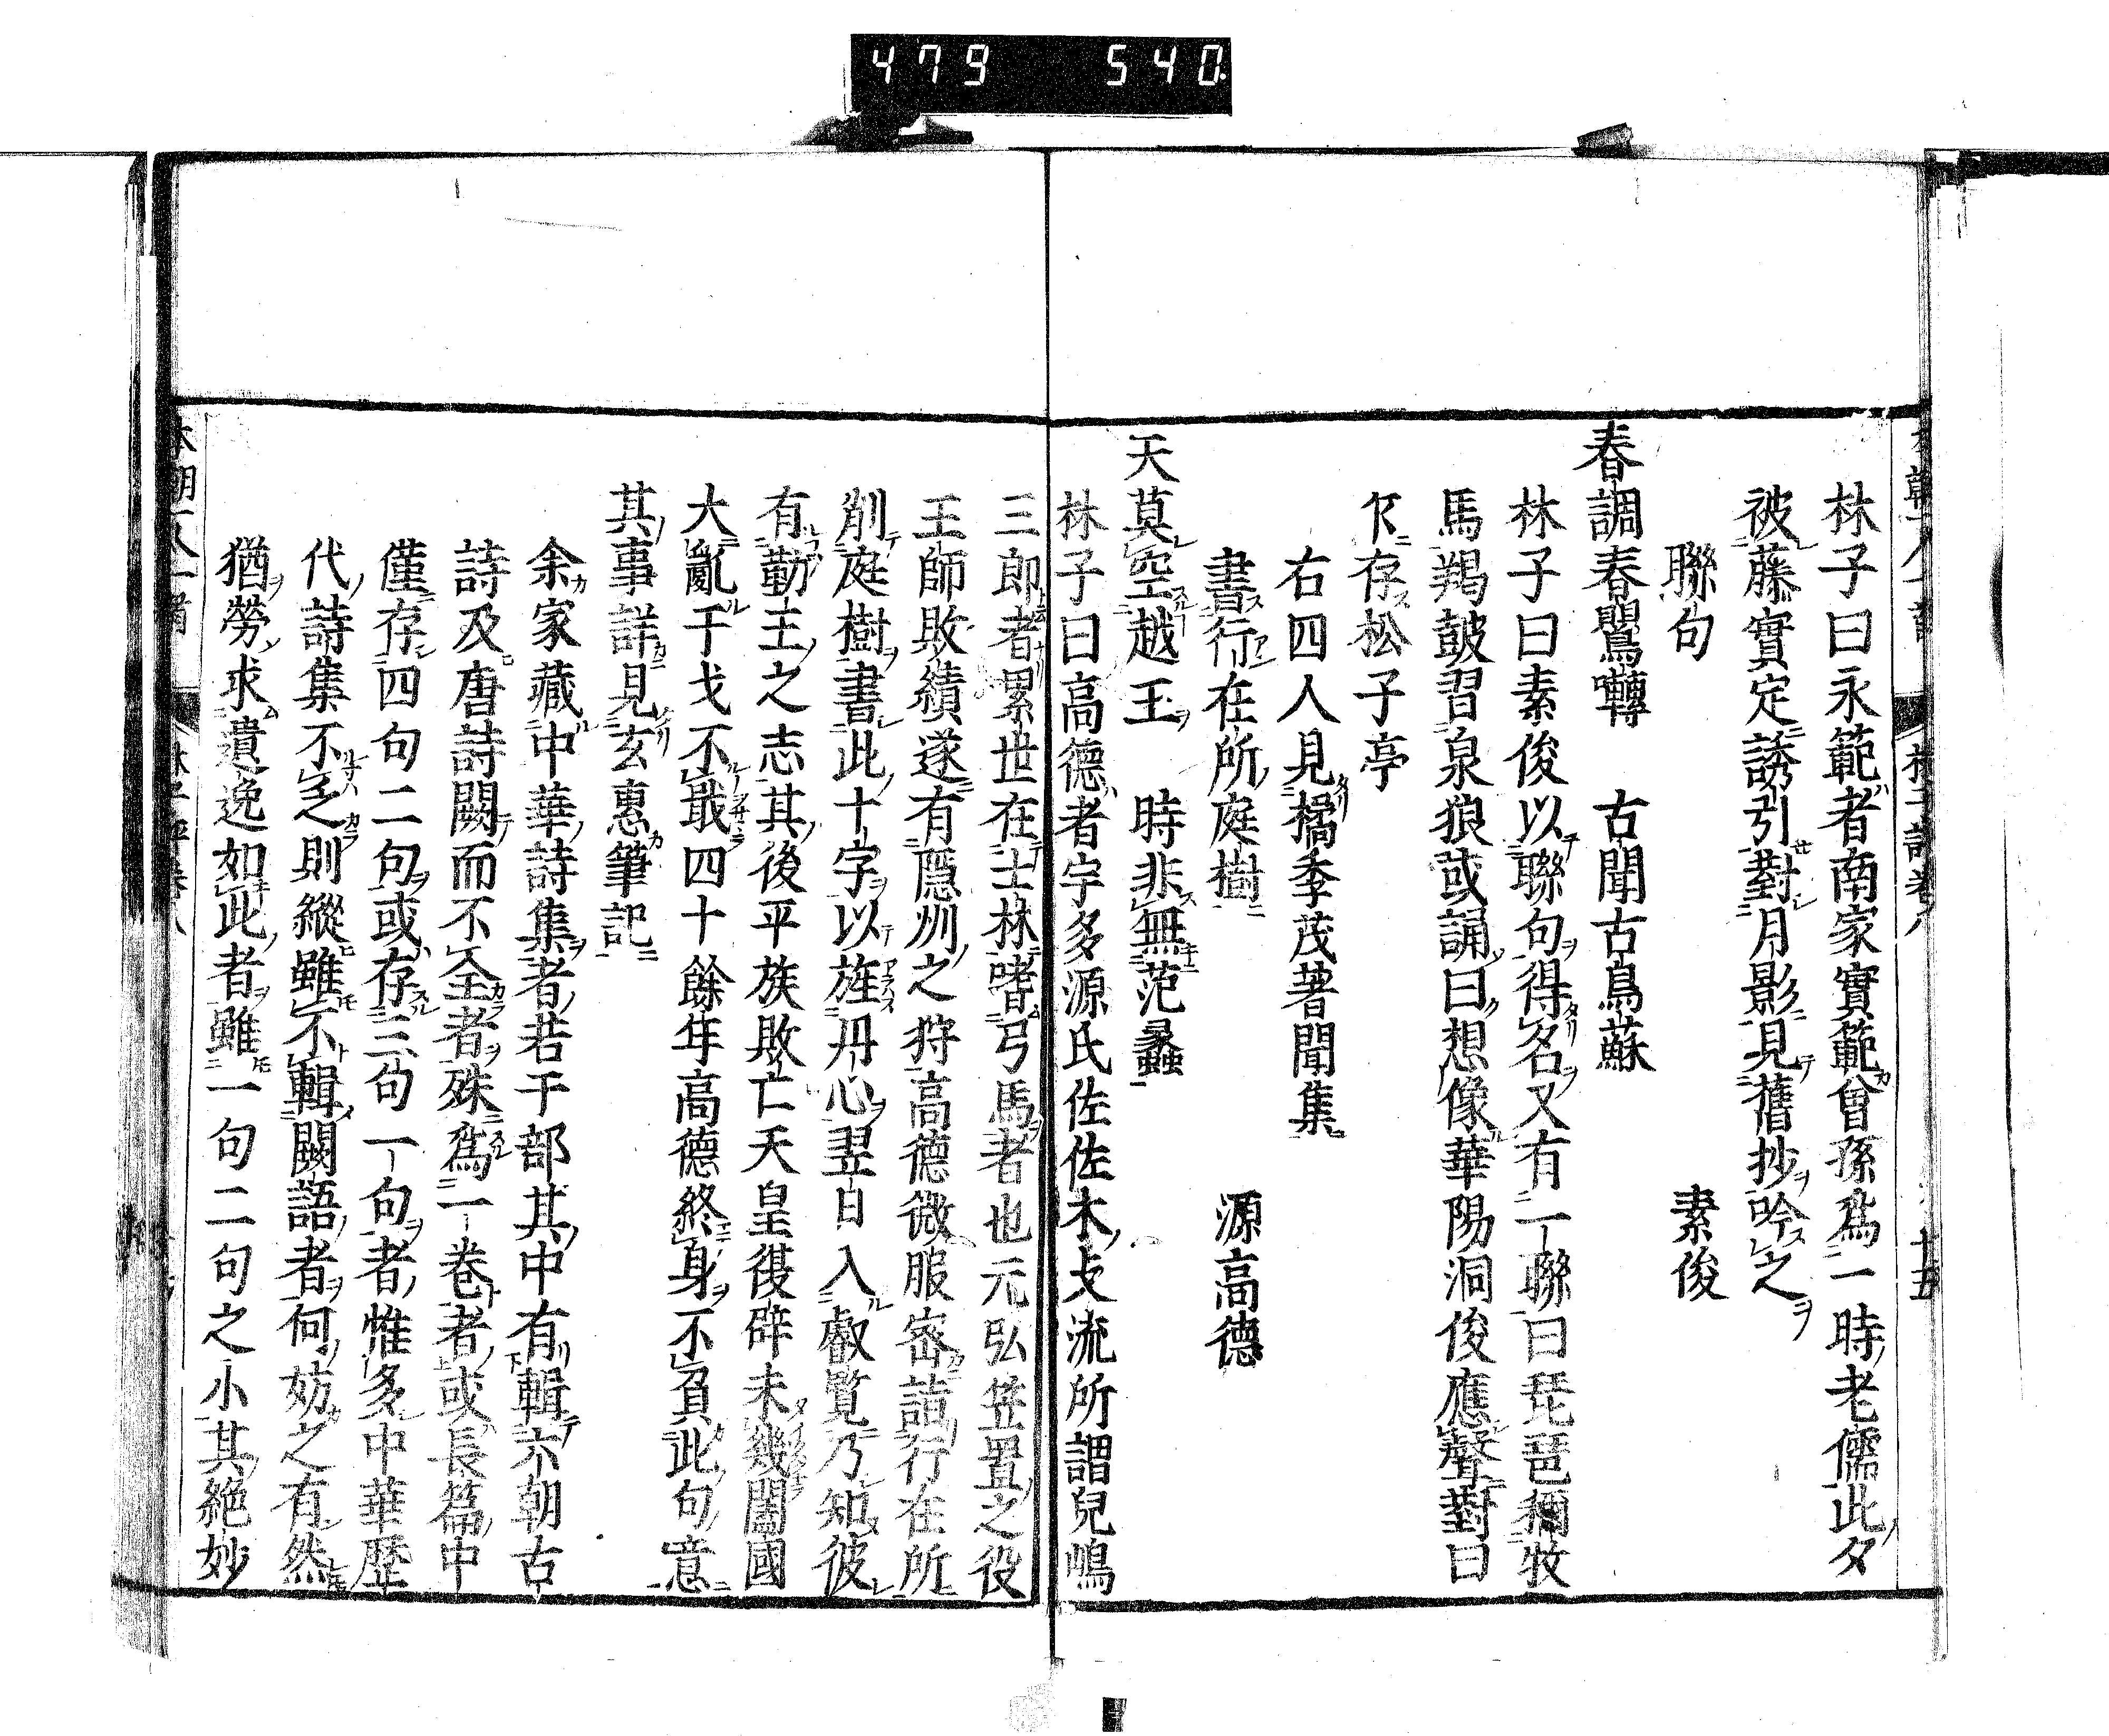 479 540
林子曰永範者南家實範曾孫爲一時老儒此夕
被藤實定誘引對月影見舊抄吟之
聯句 素俊
春調春鶯囀 古聞古鳥蘇
林子曰素俊以聯句得名又有一聯曰琵琶稱牧
馬羯鼓習泉狼或誦曰想像華陽洞俊應聲對曰
下存松子亭
右四人見橘季茂著聞集
書行在所庭樹 源高德
天莫空越王 時非無范蠡
林子曰高德者宇多源氏佐佐木支流所謂兒嶋
三郎者累世在士林嗜弓馬者也元弘笠置之役
王師敗績遂有隱州之狩高德微服密詣行在所
削庭樹書此十字以旌丹心翌日入叡覽乃知彼
有勤王之志其後平族敗亡天皇復辟未幾闔國
大亂干戈不戢四十餘年高德終身不負此句意
其事詳見玄惠筆記
余家藏中華詩集者若干部其中有輯六朝古
詩及唐詩闕而不全者殊爲一卷者或長篇中
僅存四句二句或存三句一句者惟多中華歷
代詩集不乏則縱雖不輯闕語者何妨之有然
猶勞求遺逸如此者雖一句二句之小其絕妙